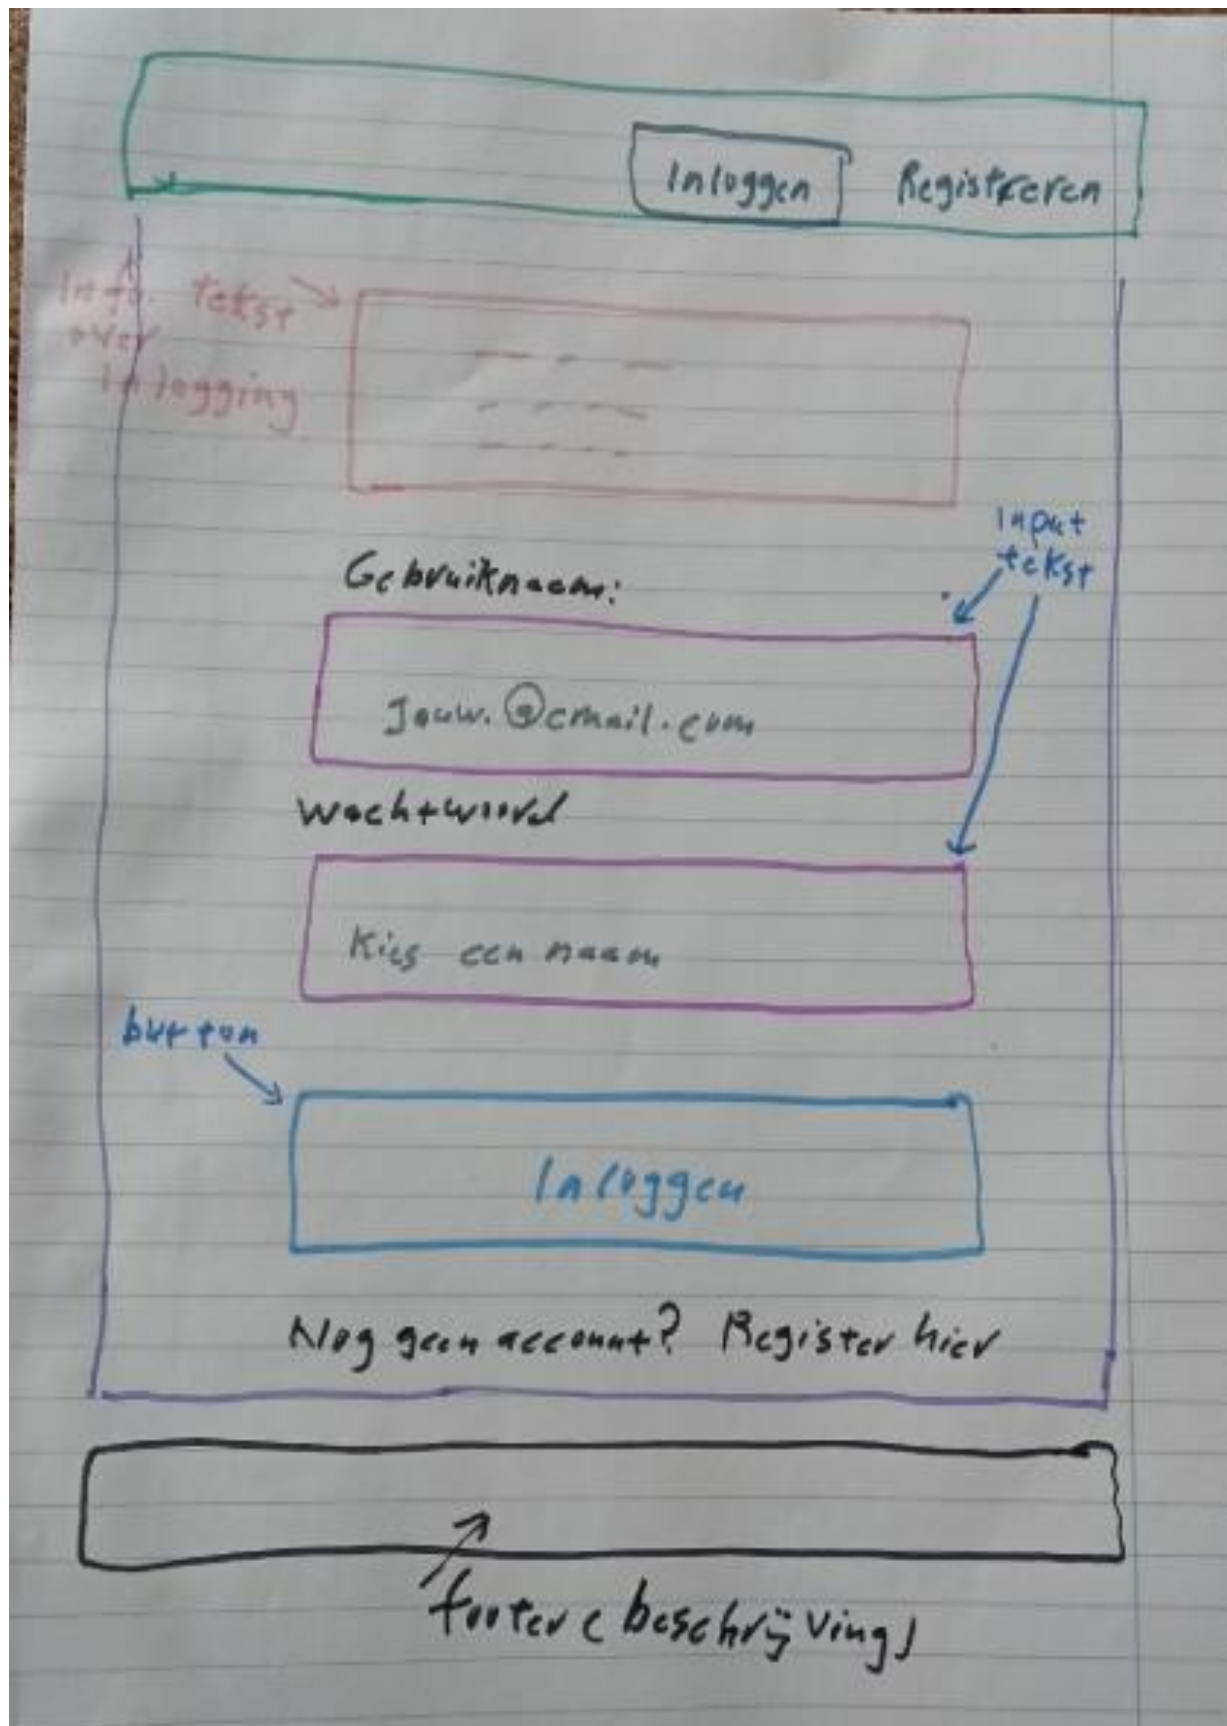 Inloggen Registreren
Info. tekst
over
Inlogging
Input
tekst
Gebruiknaam:
Jouw.@email.com
Wachtwoord
Kies een naam
button
Inloggen
Nog geen account? Register hier
footer ( beschrijving)